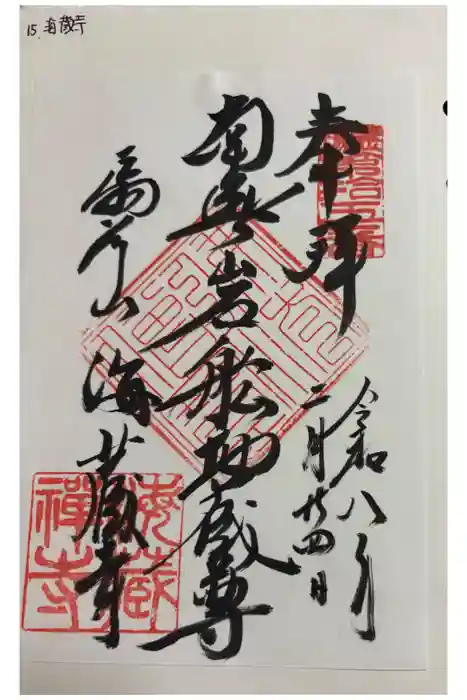 15. 海蔵寺
奉拝
令和八年
二月廿四日
南無岩船地蔵尊
扇谷山 海蔵寺
海藏
禪寺